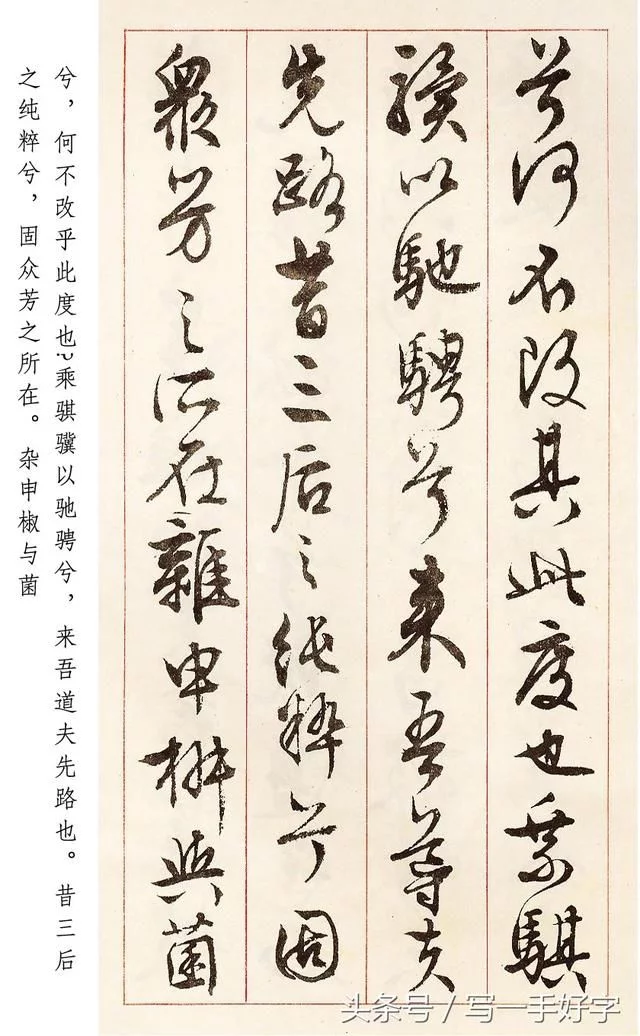 兮何不改其此度也乘騏
驥以馳騁兮来吾導夫
先路昔三后之純粹兮固
衆芳之所在雜申椒與菌
兮，何不改乎此度也~乘骐骥以驰骋兮，来吾道夫先路也。昔三后
之纯粹兮，固众芳之所在。杂申椒与菌
头条号 / 写一手好字